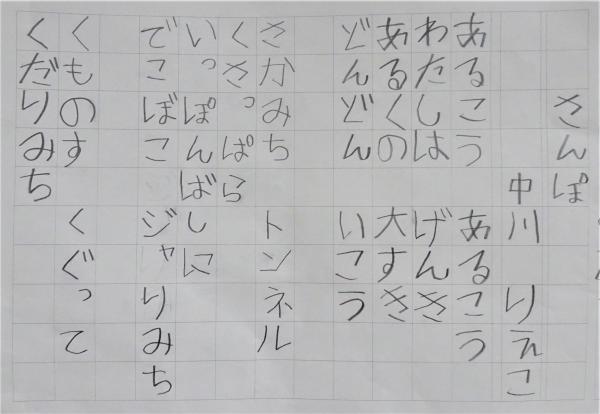 さんぽ
中川 りえこ
あるこう あるこう
わたしは げんき
あるくの 大すき
どんどん いこう
さかみち トンネル
くさっぱら
いっぽんばしに
でこぼこ ジャりみち
くものす くぐって
くだりみち